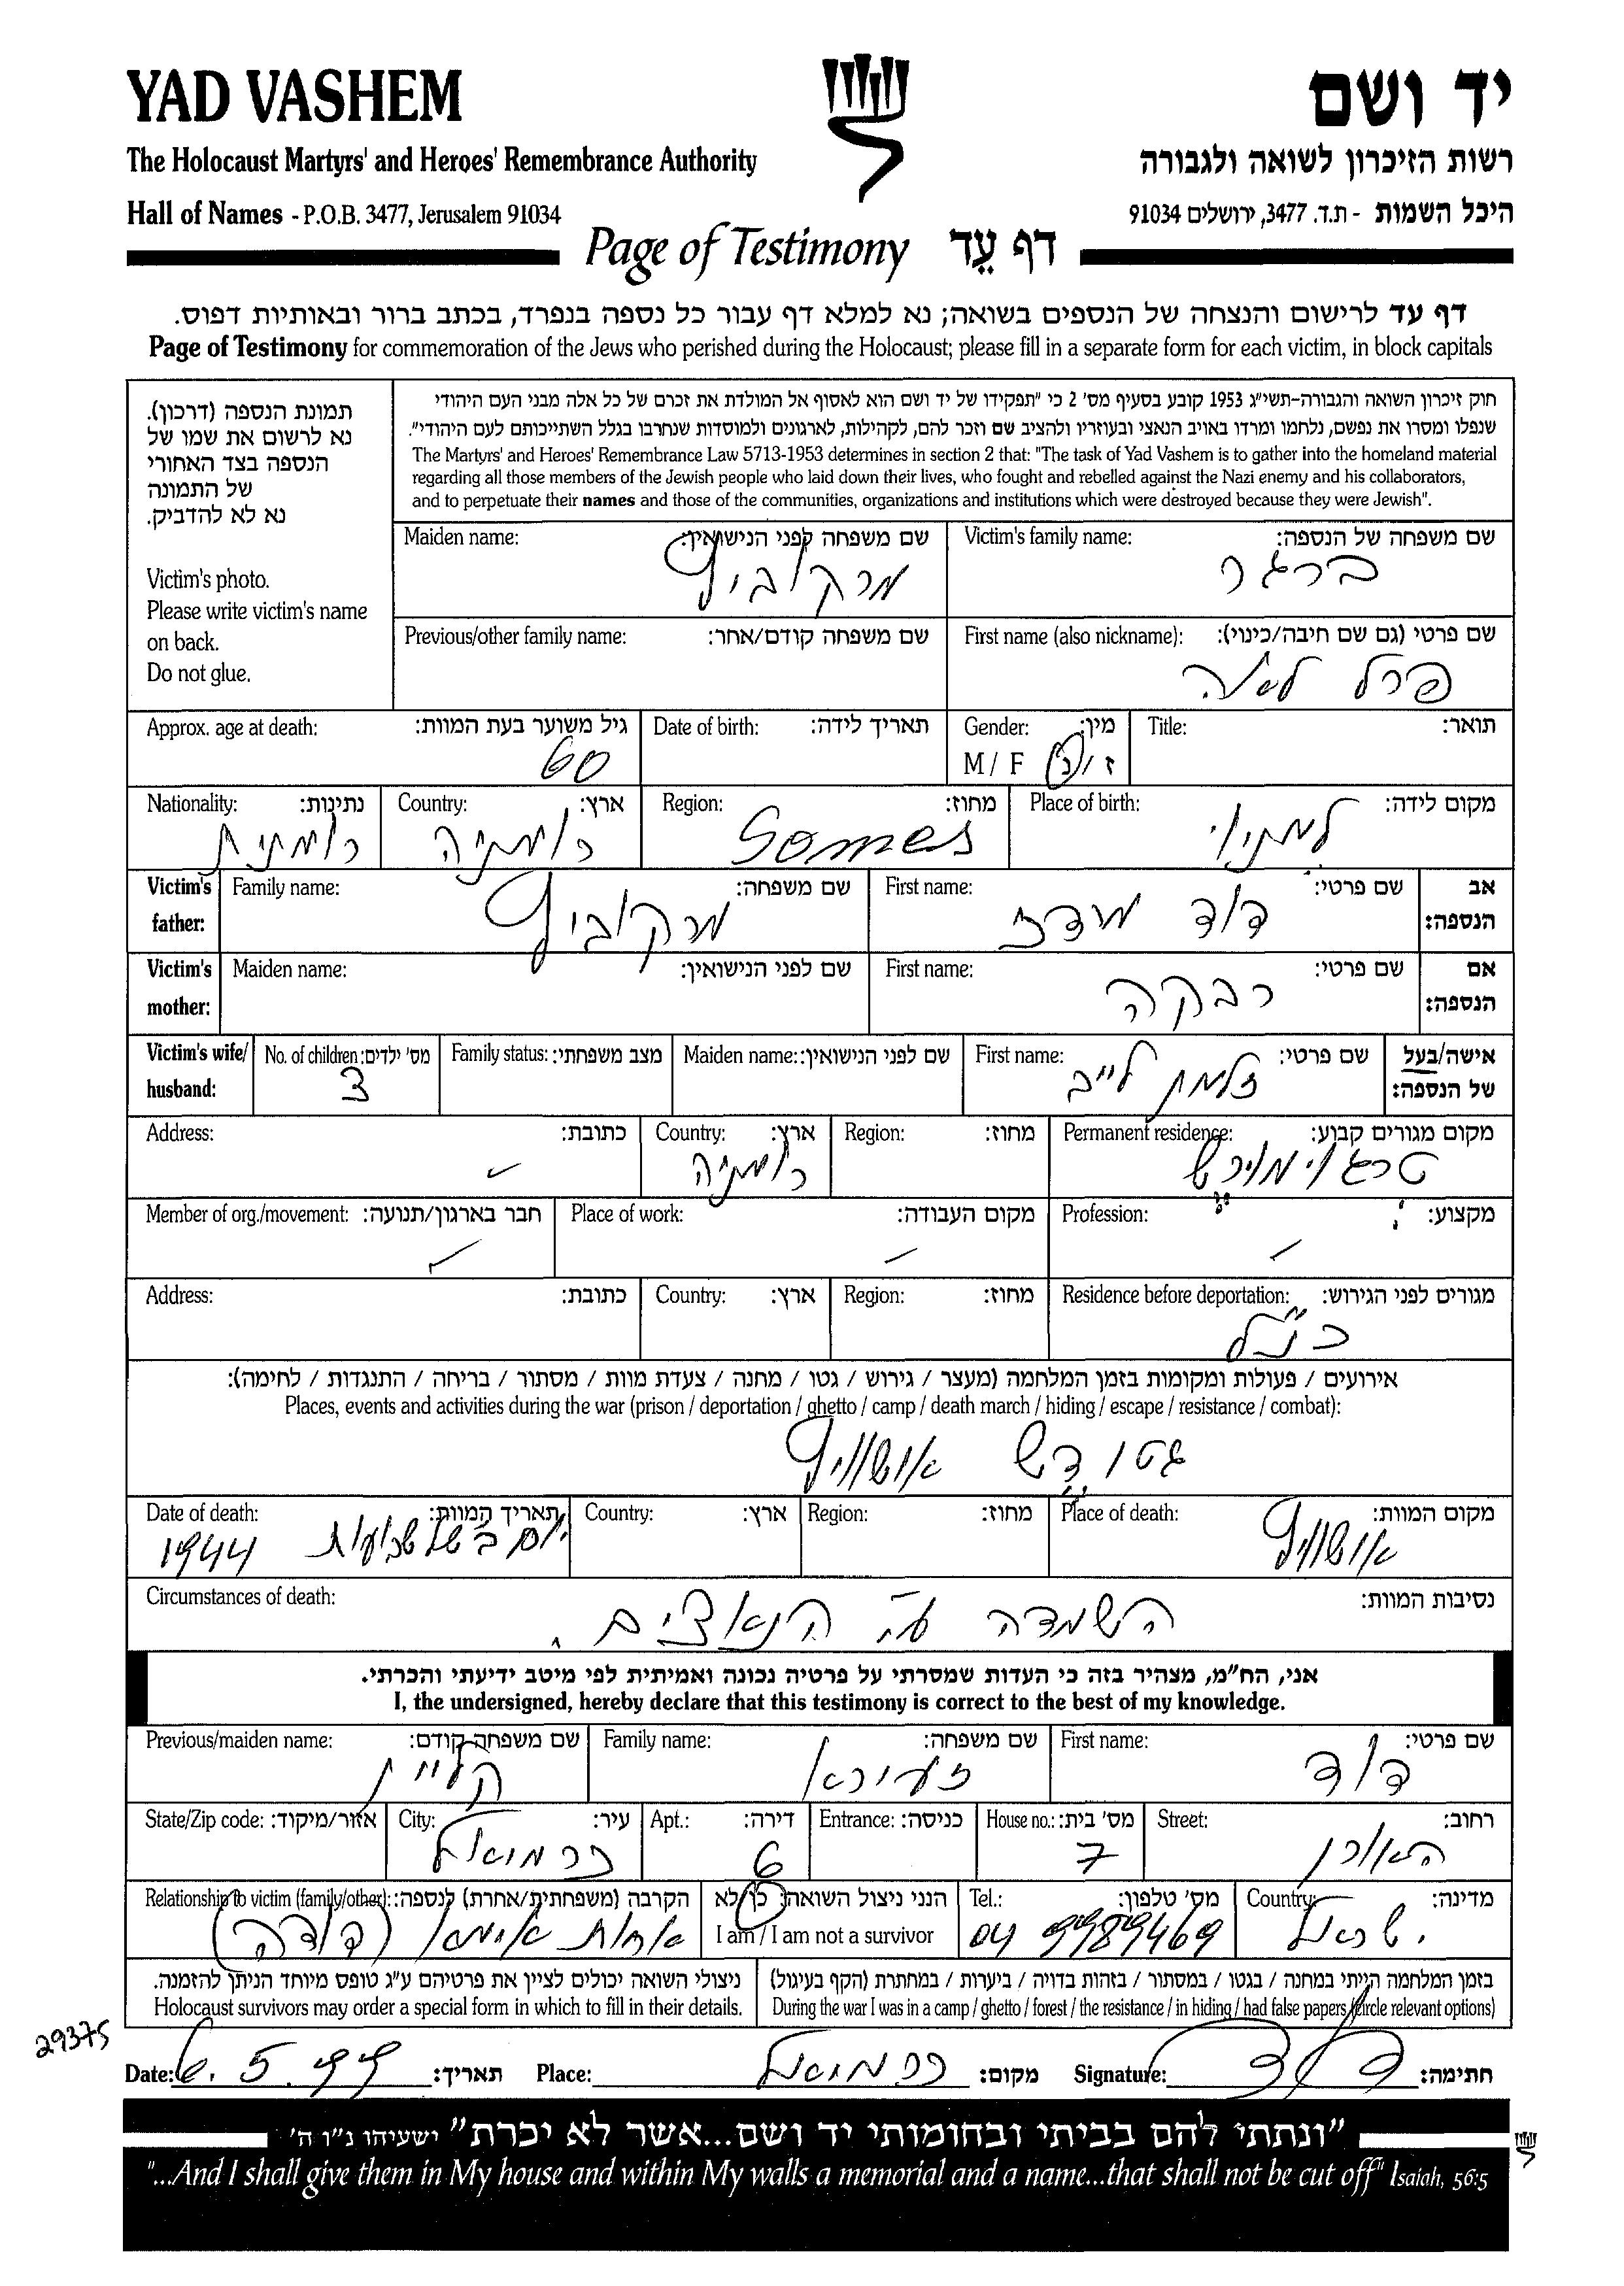 YAD VASHEM
יד ושם
The Holocaust Martyrs' and Heroes' Remembrance Authority
רשות הזיכרון לשואה ולגבורה
Hall of Names - P.O.B. 3477, Jerusalem 91034
היכל השמות - ת.ד. 3477, ירושלים 91034
Page of Testimony דף עֵד
דף עד לרישום והנצחה של הנספים בשואה; נא למלא דף עבור כל נספה בנפרד, בכתב ברור ובאותיות דפוס.
Page of Testimony for commemoration of the Jews who perished during the Holocaust; please fill in a separate form for each victim, in block capitals
תמונת הנספה (דרכון).
נא לרשום את שמו של
הנספה בצד האחורי
של התמונה
נא לא להדביק.
Victim's photo.
Please write victim's name
on back.
Do not glue.
חוק זיכרון השואה והגבורה-תשי"ג 1953 קובע בסעיף מס' 2 כי "תפקידו של יד ושם הוא לאסוף אל המולדת את זכרם של כל אלה מבני העם היהודי
שנפלו ומסרו את נפשם, נלחמו ומרדו באויב הנאצי ובעוזריו ולהציב שם וזכר להם, לקהילות, לארגונים ולמוסדות שנחרבו בגלל השתייכותם לעם היהודי".
The Martyrs' and Heroes' Remembrance Law 5713-1953 determines in section 2 that: "The task of Yad Vashem is to gather into the homeland material
regarding all those members of the Jewish people who laid down their lives, who fought and rebelled against the Nazi enemy and his collaborators,
and to perpetuate their names and those of the communities, organizations and institutions which were destroyed because they were Jewish".
Victim's family name: שם משפחה של הנספה:
ברגר
Maiden name: שם משפחה לפני הנישואין:
מרקוביץ
First name (also nickname): שם פרטי (גם שם חיבה/כינוי):
פרל לאה
Previous/other family name: שם משפחה קודם/אחר:
Title: תואר:
Gender: מין:
M / F ז / נ
Date of birth: תאריך לידה:
Approx. age at death: גיל משוער בעת המוות:
60
Place of birth: מקום לידה:
Region: מחוז:
Somes
Country: ארץ:
רומניה
Nationality: נתינות:
רומנית
Victim's father: אב הנספה:
First name: שם פרטי:
דוד מרדכי
Family name: שם משפחה:
מרקוביץ
Victim's mother: אם הנספה:
First name: שם פרטי:
רבקה
Maiden name: שם לפני הנישואין:
Victim's wife/ husband: אישה/בעל של הנספה:
First name: שם פרטי:
זלמן לייב
Maiden name: שם לפני הנישואין:
Family status: מצב משפחתי:
No. of children: מס' ילדים:
3
Permanent residence: מקום מגורים קבוע:
טרגו מורש
Region: מחוז:
Country: ארץ:
רומניה
Address: כתובת:
Profession: מקצוע:
Place of work: מקום העבודה:
Member of org./movement: חבר בארגון/תנועה:
Residence before deportation: מגורים לפני הגירוש:
כנ"ל
Region: מחוז:
Country: ארץ:
Address: כתובת:
אירועים / פעולות ומקומות בזמן המלחמה (מעצר / גירוש / גטו / מחנה / צעדת מוות / מסתור / בריחה / התנגדות / לחימה):
Places, events and activities during the war (prison / deportation / ghetto / camp / death march / hiding / escape / resistance / combat):
גטו דש אושוויץ
Place of death: מקום המוות:
אושוויץ
Region: מחוז:
Country: ארץ:
Date of death: תאריך המוות:
יום ב' של שבועות 1944
Circumstances of death: נסיבות המוות:
השמדה ע"י הנאצים.
אני, הח"מ, מצהיר בזה כי העדות שמסרתי על פרטיה נכונה ואמיתית לפי מיטב ידיעתי והכרתי.
I, the undersigned, hereby declare that this testimony is correct to the best of my knowledge.
First name: שם פרטי:
דוד
Family name: שם משפחה:
זעירא
Previous/maiden name: שם משפחה קודם:
קליין
Street: רחוב:
האורן
House no.: מס' בית:
7
Entrance: כניסה:
Apt.: דירה:
6
City: עיר:
כרמיאל
State/Zip code: אזור/מיקוד:
Country: מדינה:
ישראל
Tel.: מס' טלפון:
04 9989469
הנני ניצול השואה: כן/לא
I am / I am not a survivor
Relationship to victim (family/other): הקרבה (משפחתית/אחרת) לנספה:
אחות אימא (דודה)
בזמן המלחמה הייתי במחנה / בגטו / במסתור / בזהות בדויה / ביערות / במחתרת (הקף בעיגול)
During the war I was in a camp / ghetto / forest / the resistance / in hiding / had false papers (circle relevant options)
ניצולי השואה יכולים לציין את פרטיהם ע"ג טופס מיוחד הניתן להזמנה.
Holocaust survivors may order a special form in which to fill in their details.
29375
Date: 6.5.99 תאריך:
Place: כרמיאל מקום:
Signature: חתימה:
"ונתתי להם בביתי ובחומותי יד ושם...אשר לא יכרת" ישעיהו נ"ו ה'
"...And I shall give them in My house and within My walls a memorial and a name...that shall not be cut off" Isaiah, 56:5